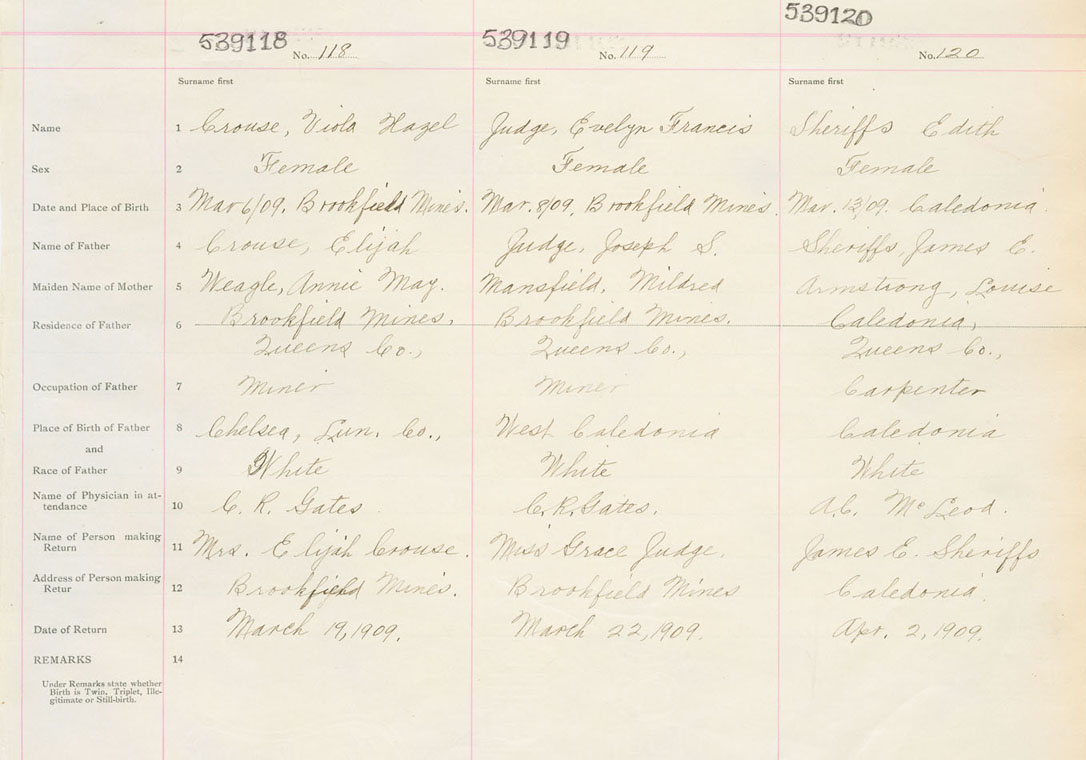 539118 539119 539120
No. 118 No. 119 No. 120
Surname first Surname first Surname first
Name 1 Crouse, Viola Hazel Judge, Evelyn Francis Sheriffs Edith
Sex 2 Female Female Female
Date and Place of Birth 3 Mar 6/09. Brookfield Mines. Mar. 8/09, Brookfield Mines. Mar. 13/09. Caledonia.
Name of Father 4 Crouse, Elijah Judge, Joseph S. Sheriffs, James E.
Maiden Name of Mother 5 Weagle, Annie May. Mansfield, Mildred Armstrong, Louise
Residence of Father 6 Brookfield Mines, Brookfield Mines. Caledonia,
Queens Co., Queens Co., Queens Co.,
Occupation of Father 7 Miner Miner Carpenter
Place of Birth of Father 8 Chelsea, Lun. Co., West Caledonia Caledonia
and
Race of Father 9 White White White
Name of Physician in at-
tendance 10 C. R. Gates C. R. Gates. A.C. McLeod.
Name of Person making
Return 11 Mrs. Elijah Crouse. Miss Grace Judge. James E. Sheriffs
Address of Person making
Retur 12 Brookfield Mines. Brookfield Mines Caledonia.
Date of Return 13 March 19, 1909. March 22, 1909. Apr. 2, 1909.
REMARKS 14
Under Remarks state whether
Birth is Twin, Triplet, Ille-
gitimate or Still-birth.